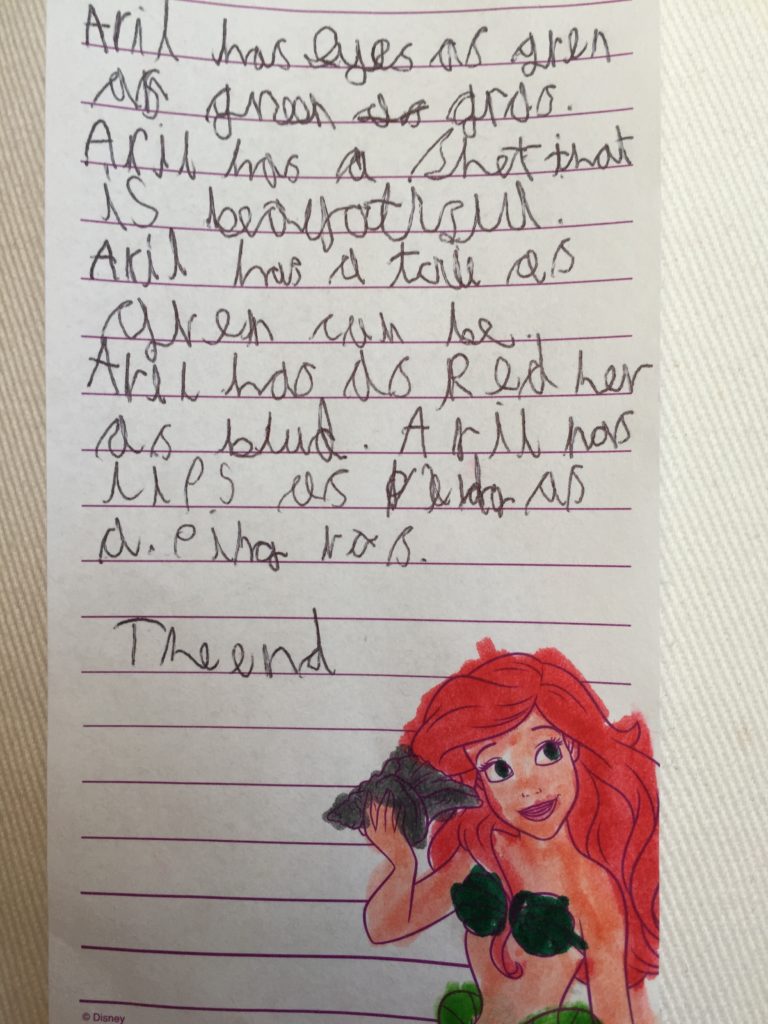 Aril has eyes as gren
as green as gras.
Aril has a shet that
is beayotifull.
Aril has a tail as
Gren can be.
Aril has as Red her
as blud. Aril has
lips as as
a. Ping ros.
The end
© Disney